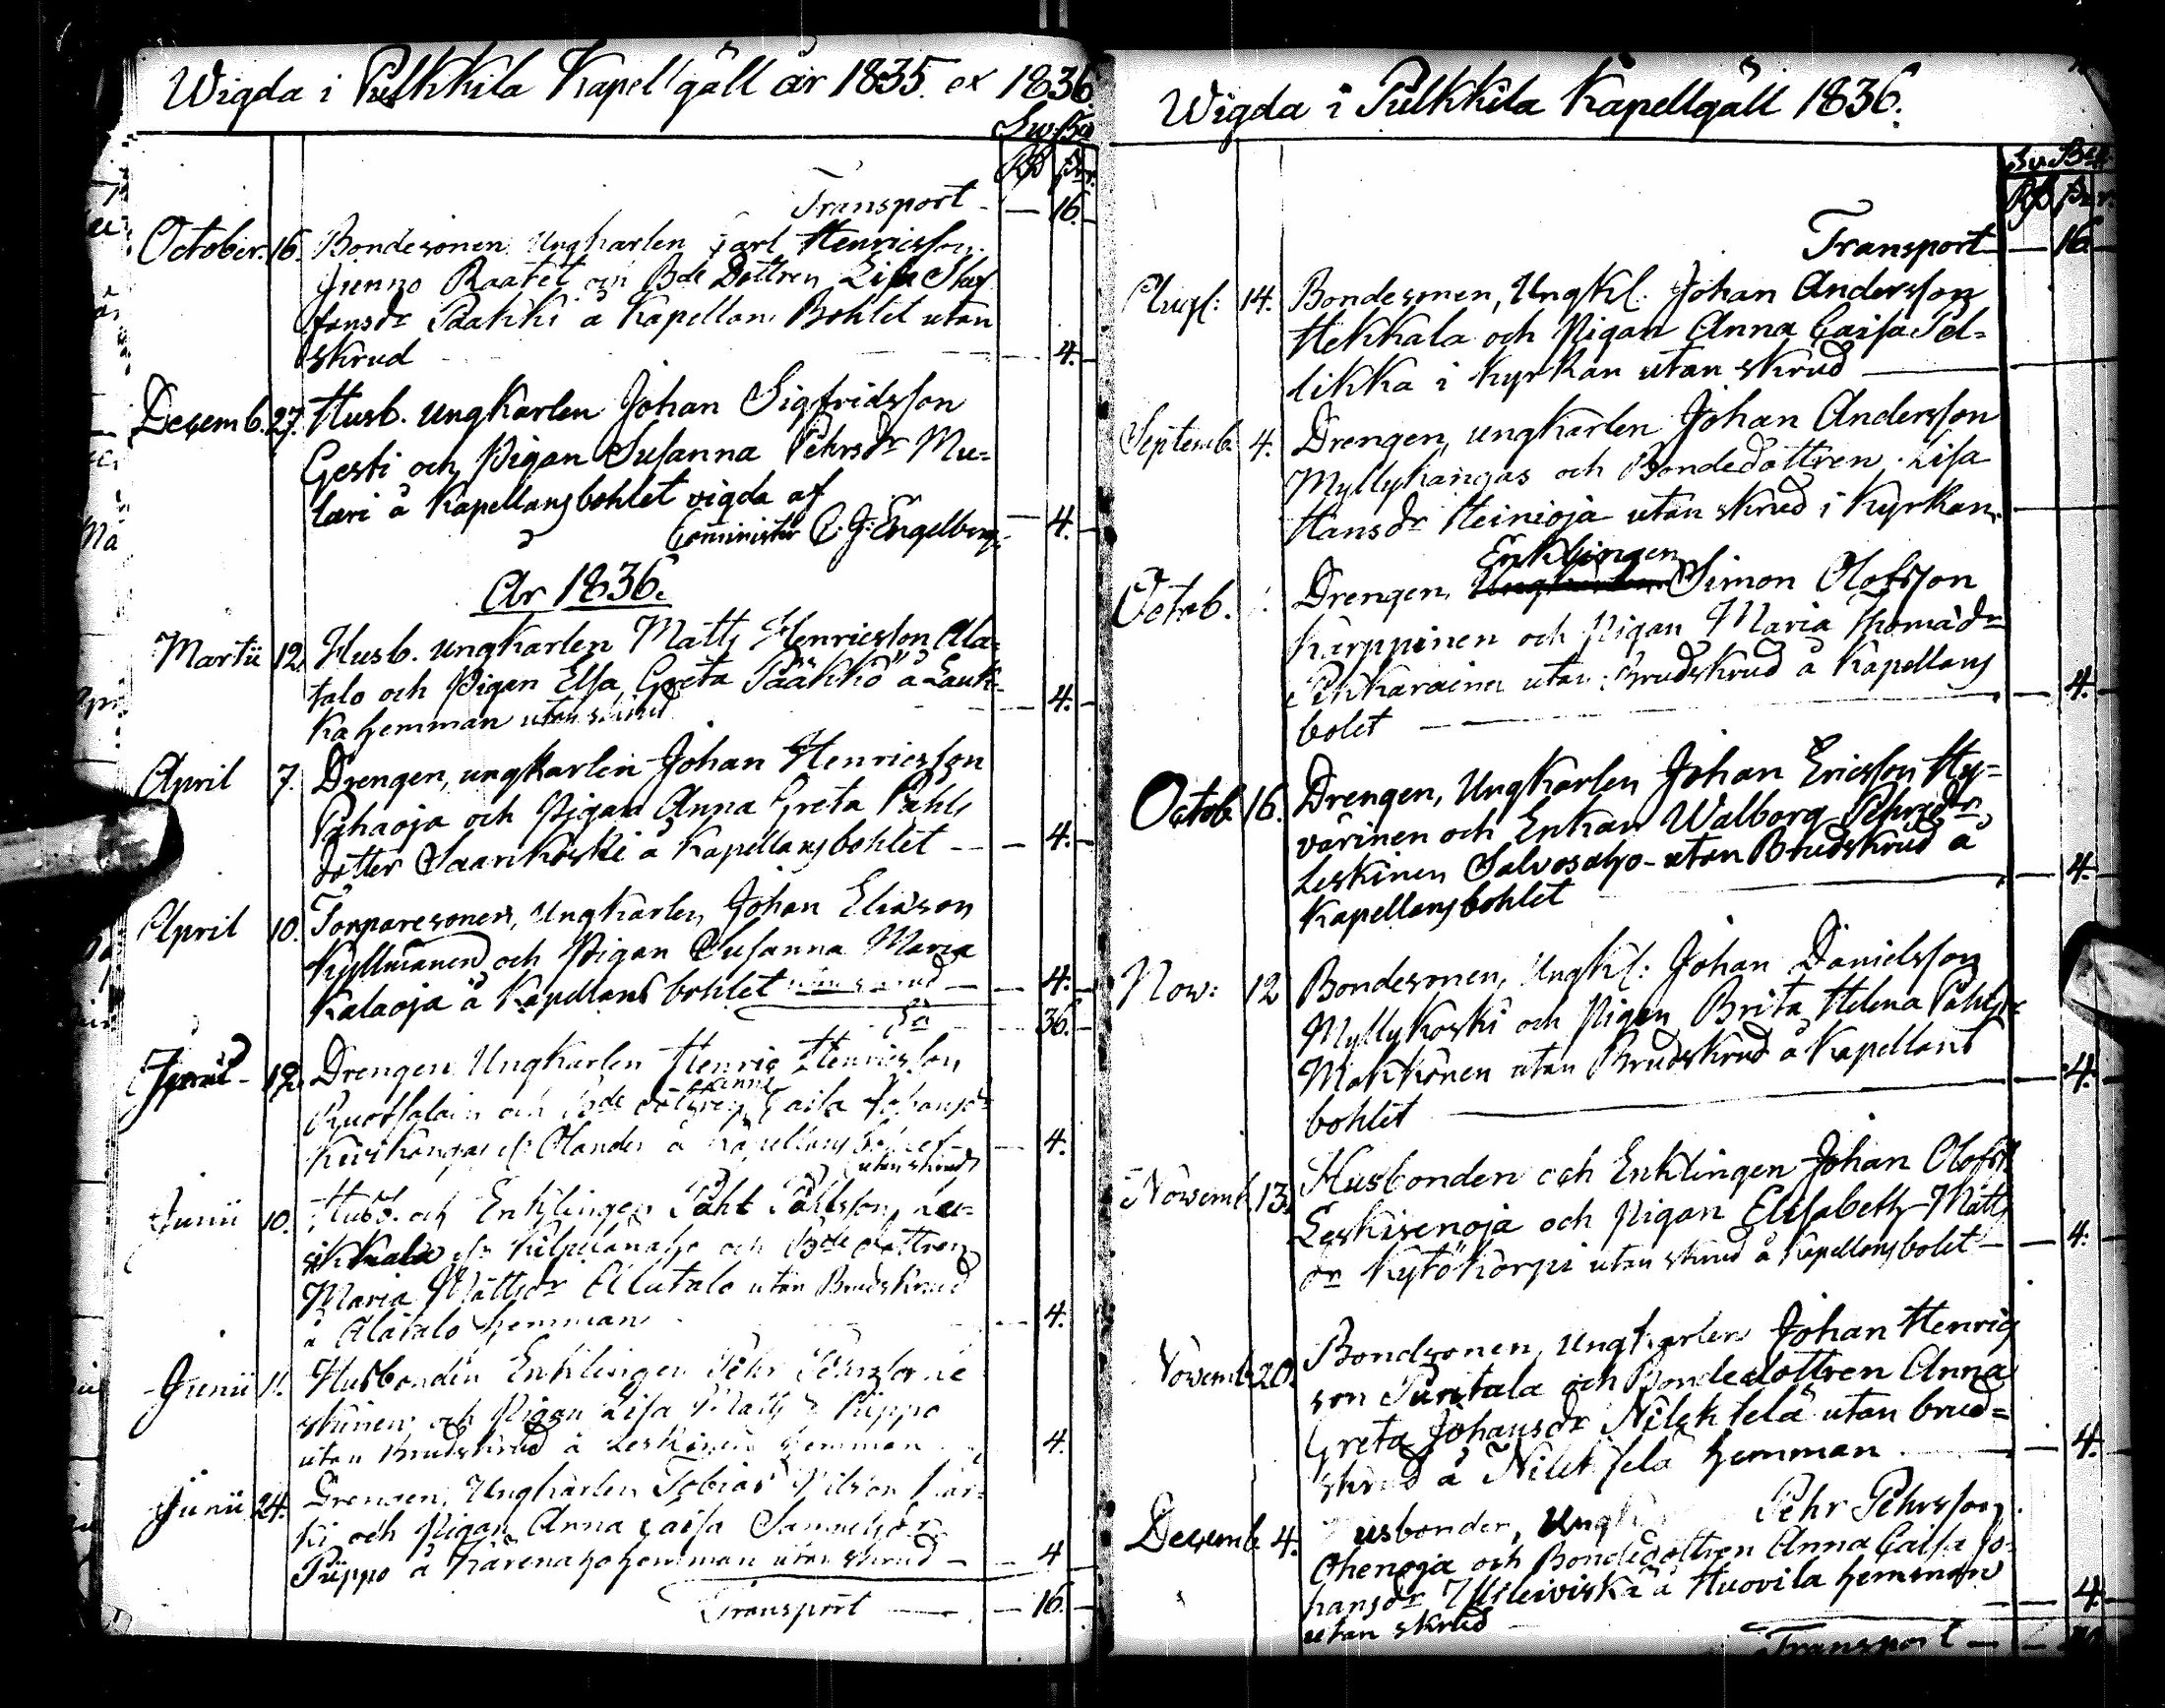 Wigda i Pulkkila Kapellgäll år 1835. ex 1836.
Sw. Bco
Rd sk. r.
Transport — 16.
October. 16. Bondesonen Ungkarlen Carl Henricsson
Junno Raatet och Bde Dottren Lisa
fansdr Paakki å Kapellans Bohlet utan
skrud — 4.
Decemb. 27. Husb. ungkarlen Johan Sigfridsson
Gesti och Pigan Susanna Pehrsdr Mu-
lari å Kapellansbohlet vigda af
Cominister C. J. Engelberg — 4.
År 1836.
Martii 12. Husb. ungkarlen Matts Henricsson Ala-
talo och Pigan Elsa Greta Pääkkö å Lauk-
ka hemman utan skrud — 4.
April 7. Drengen, ungkarlen Johan Henricsson
Pihaoja och Pigan Anna Greta Pahls
dotter Saarikoski å Kapellansbohlet — 4.
April 10. Torparesonen, Ungkarlen Johan Eliason
Kyllmänen och Pigan Susanna Maria
Kalaoja å Kapellans bohlet utan skrud — 4.
Sa — 36.
12. Drengen Ungkarlen Henric Henricsson
Anna
Ruotsalain och Bde dottren Caisa Johansdr
Kuiskangas el. Olander å Kapellans bohlet — 4.
utan skrud
Junii 10. Husb. och Enklingen Pahl Pahlsson Leu-
Kilpelänaho och Bde dottren
Maria Mattsdr Alatalo utan Brudskrud
å Alatalo hemman — 4.
Junii 11. Husbonden Enklingen Pehr Pehrsson Le
skinen och Pigan Lisa Matts dr Piippo
utan Brudskrud å Leskinen hemman 4.
Junii 24. Drengen, Ungkarlen Tobias Nilson Kär-
ki och Pigan Anna Caisa Samuelsdr
Piippo å Kärenaho hemman utan skrud — 4
Transport — 16.
Wigda i Pulkkila Kapellgäll 1836.
Sv. Bco.
Rd sk. r.
Transport — 16.
Aug: 14. Bondesonen, Ungkl: Johan Andersson
Hekkala och Pigan Anna Caisa Pel-
likka i Kyrkan utan skrud —
Septemb. 4. Drengen, ungkarlen Johan Andersson
Myllykangas och Bondedottren Lisa
Hansdr Heinioja utan skrud i Kyrkan. —
Enklingen
Octob. Drengen, Simon Olofsson
Karppinen och Pigan Maria Thomædr
Pikkarainen utan Brudskrud å Kapellans
bolet — 4.
Octob. 16. Drengen, Ungkarlen Johan Ericsson Hy-
värinen och Enkan Walborg Pehrsdr
Leskinen Salvosaho utan Brudskrud å
Kapellansbohlet — 4.
Nov: 12 Bondesonen, Ungkl: Johan Danielsson
Myllykoski och Pigan Brita Helena Pahlsdr
Makkonen utan Brudskrud å Kapellans
bohlet — 4.
Novemb. 13. Husbonden och Enklingen Johan Olofss
Leskisenoja och Pigan Elisabeth Matts
dr Kytökorpi utan skrud å Kapellansbolet — 4.
Novemb. 20. Bondsonen, Ungkarlen Johan Henrics
son Puritala och Bondedottren Anna
Greta Johansdr Nilekselä utan brud-
skrud å Nilekselä hemman — 4.
Decemb. 4. Husbonden, Pehr Pehrsson
Ohenoja och Bondedottren Anna Caisa Jo-
hansdr Ylileiviskä å Huovila hemman
utan skrud — 4.
Transport —